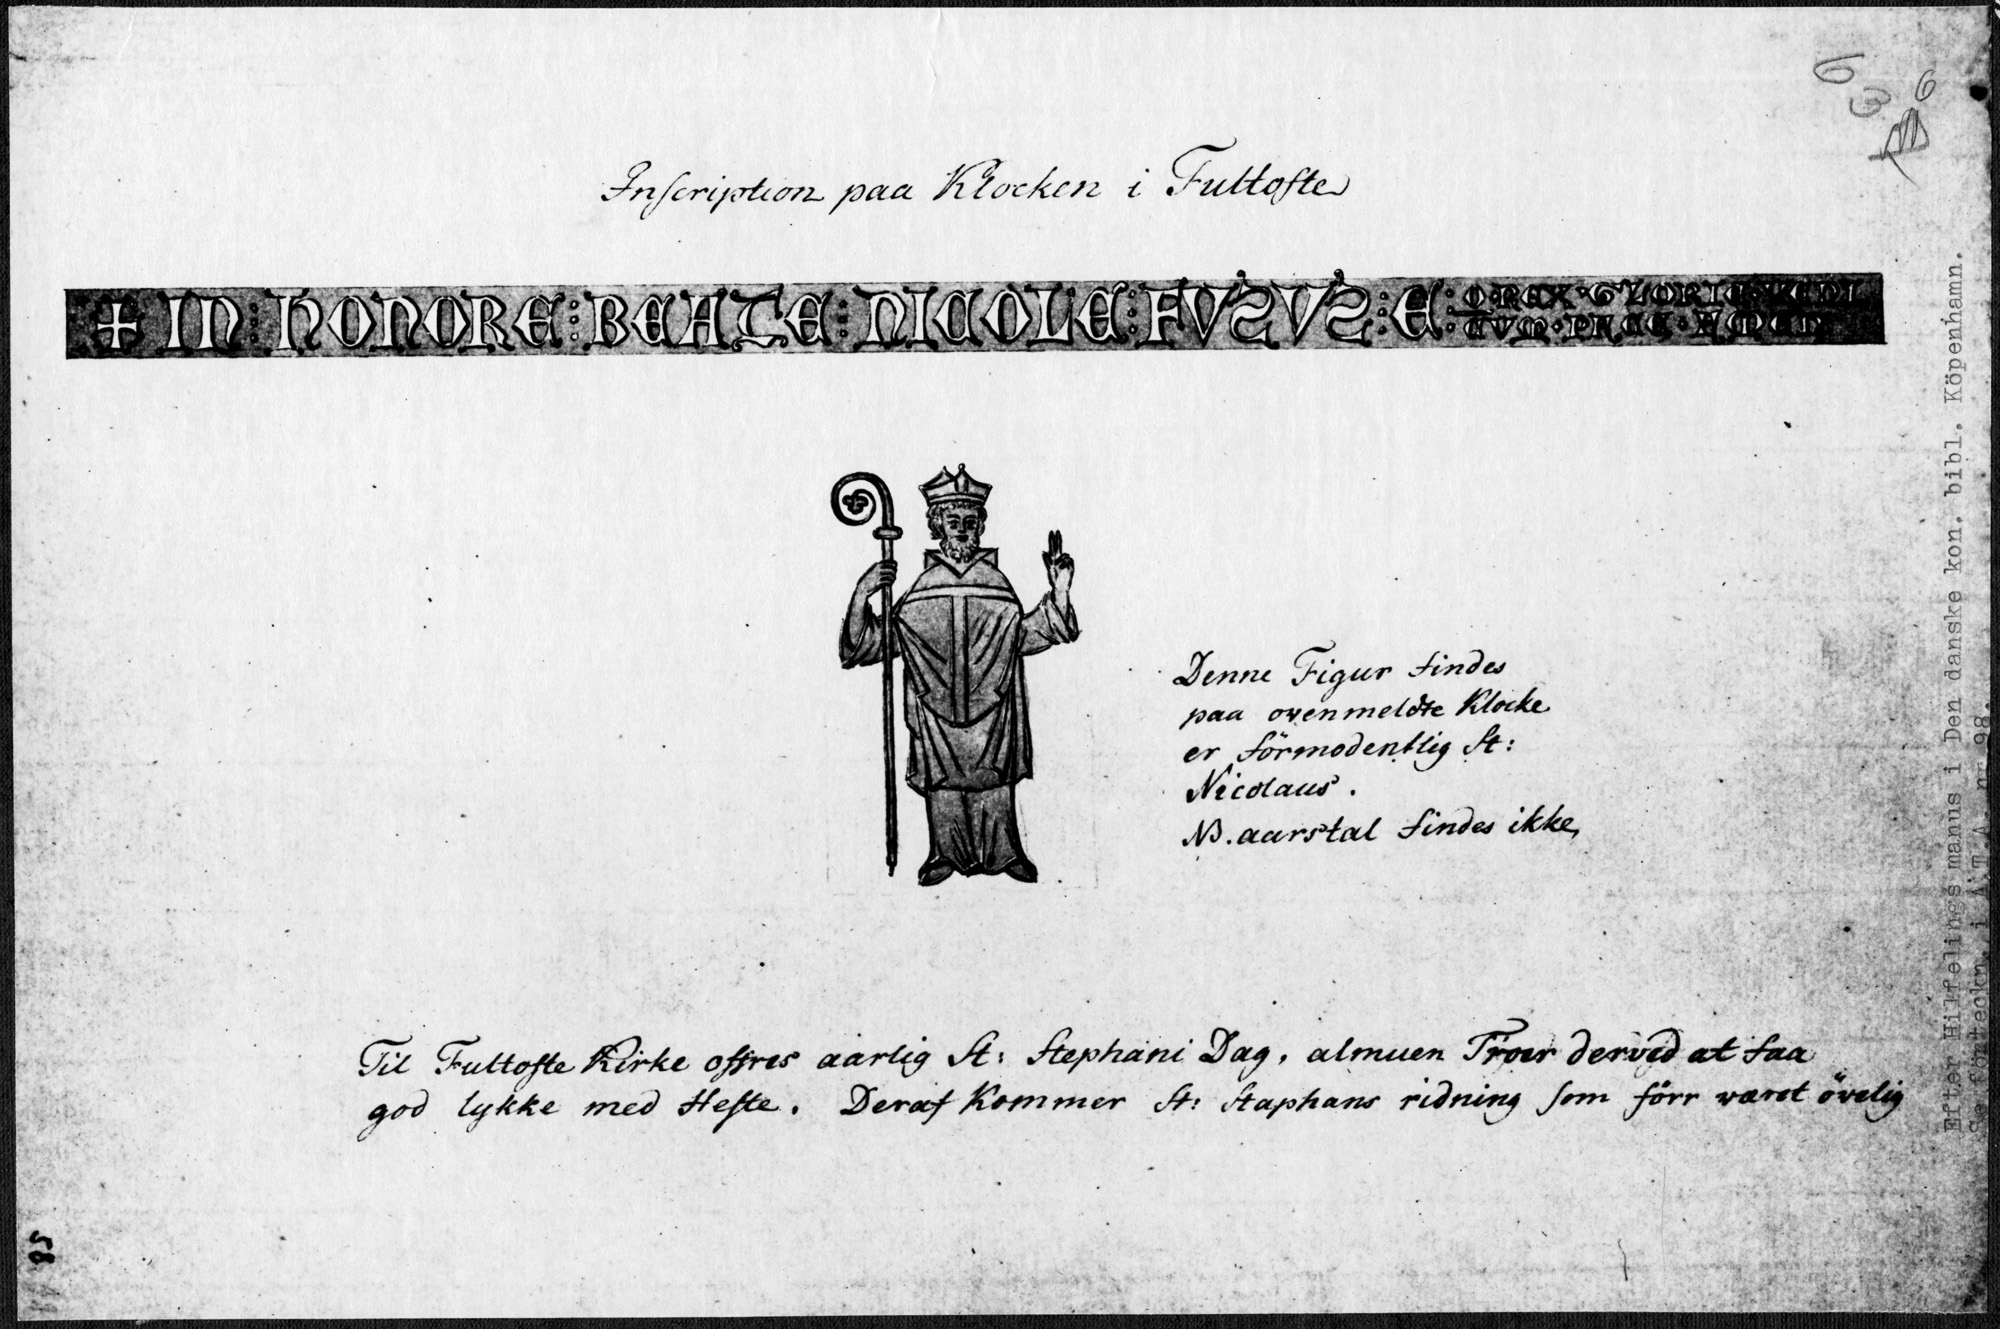 Inscription paa Klocken i Fultofte
+ IN : HONORE : BEATE : NICOLE : FVSVS : E :
O · REX · GLORIE · VENI
CVM · PACE · AMEN
Denne Figur findes
paa ovenmeldte Klocke
er förmodentlig St:
Nicolaus.
NB. aarstal findes ikke,
Til Fultofte Kirke offres aarlig St: Stephani Dag, almuen Troer derved at faa
god lykke med Hefte. Deraf Kommer St: Staphans ridning som förr wæret övelig
Efter Hilfelings manus i Den danske kon. bibl. Köpenhamn.
Se förteckn. i A.T.A. nr 98.
6
3
6
85